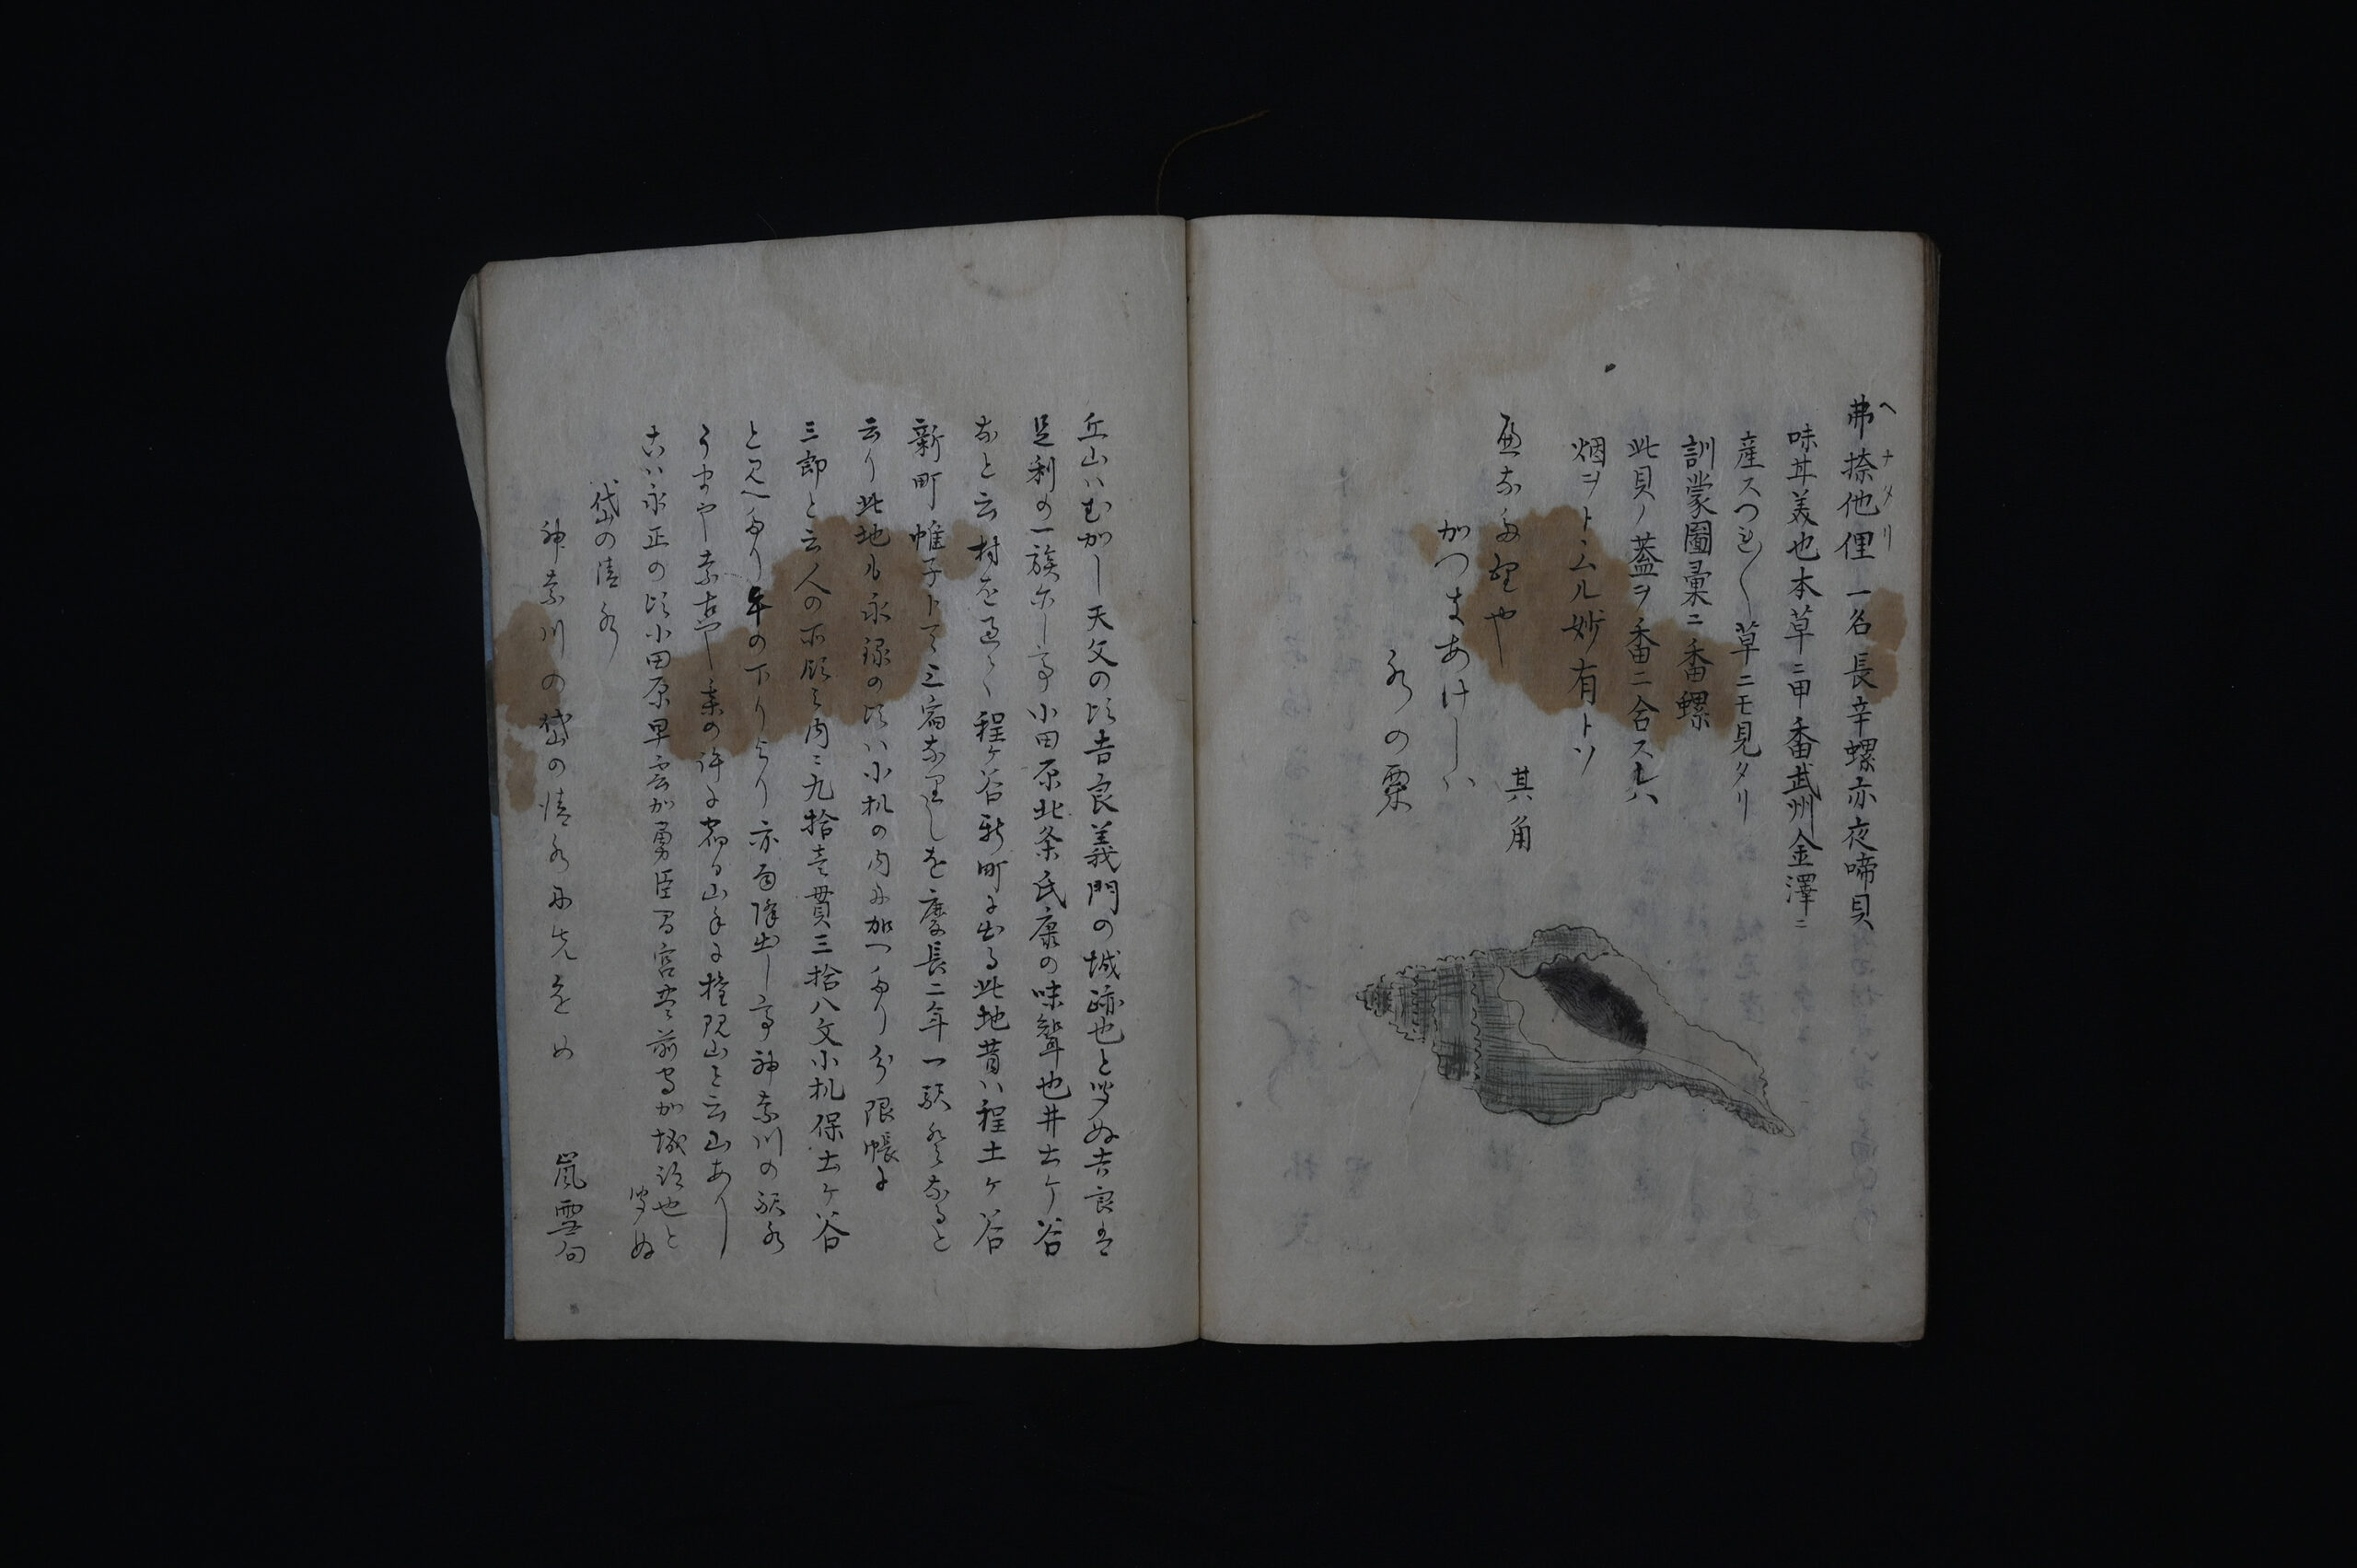 弗捺他俚一名長辛螺亦夜啼貝
ヘナタリ
味甘美也本草ニ甲香武州金澤ニ
産スつれ〱草ニモ見タリ
訓蒙圖彙ニ香螺
此貝ノ蓋ヲ香ニ合スレハ
烟ヲトムル妙有トソ
其角
かつまあけしハ
水の粟
丘山ハむかし天文の比吉良義門の城跡也と聞ぬ吉良は
足利の一族にして小田原北条氏康の味聟也井土ケ谷
なと云村を過て程ケ谷新町に出る此地昔ハ程土ケ谷
新町帷子トテ三宿なりしを慶長二年一駅となると
云り此地も永禄の比ハ小机の内に加へたり分限帳に
三郎と云人の所領之内ニ九拾壱貫三拾八文小机保土ケ谷
と見へたり午の下りより亦雨降出して神奈川の駅
許に宿る山手に権現山と云山あり
古ハ永正の比小田原早雲か勇臣間宮
か城跡也と
聞ぬ
岱の清水
神奈川の岱の清水に先をめ
嵐雪句